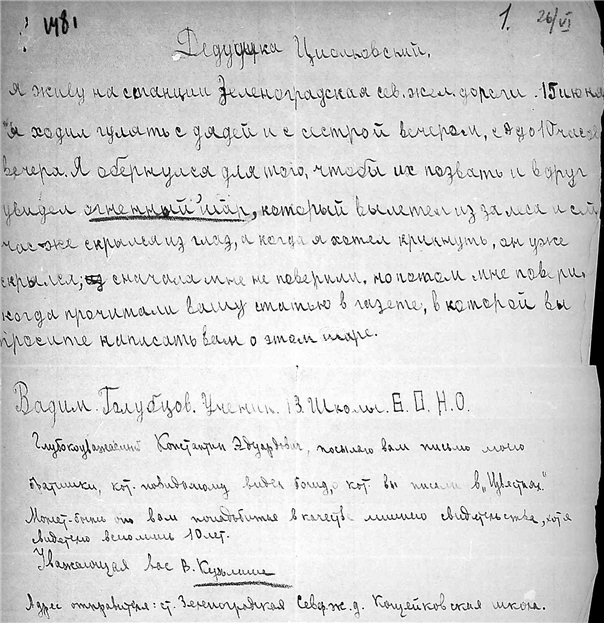 1481
1. 26/VI
Дедушка Циолковский.
Я живу на станции Зеленоградская сев. жел. дороги. 15 июня
я ходил гулять с дядей и с сестрой вечером, с 9 до 10 часов
вечера. Я обернулся для того, чтобы их позвать и вдруг
увидел огненный шар, который вылетел из за леса и сей
час-же скрылся из глаз, и когда я хотел крикнуть, он уже
скрылся; сначала мне не поверили, но потом мне повери
когда прочитали вашу статью в газете, в которой вы
просите написать вам о этом шаре.
Вадим. Голубцов. Ученик. 13. Школы. Б. О. Н. О.
Глубокоуважаемый Константин Эдуардович, посылаю вам письмо моего
братишки, кот. повидимому видел болид, о кот. вы писали в „Известиях".
Может-быть оно вам понадобится в качестве лишнего свидетельства, хотя
свидетелю всего лишь 10 лет.
Уважающая вас В.
Адрес отправителя: ст. Зеленоградская Север. ж. д. Кощейковская школа.